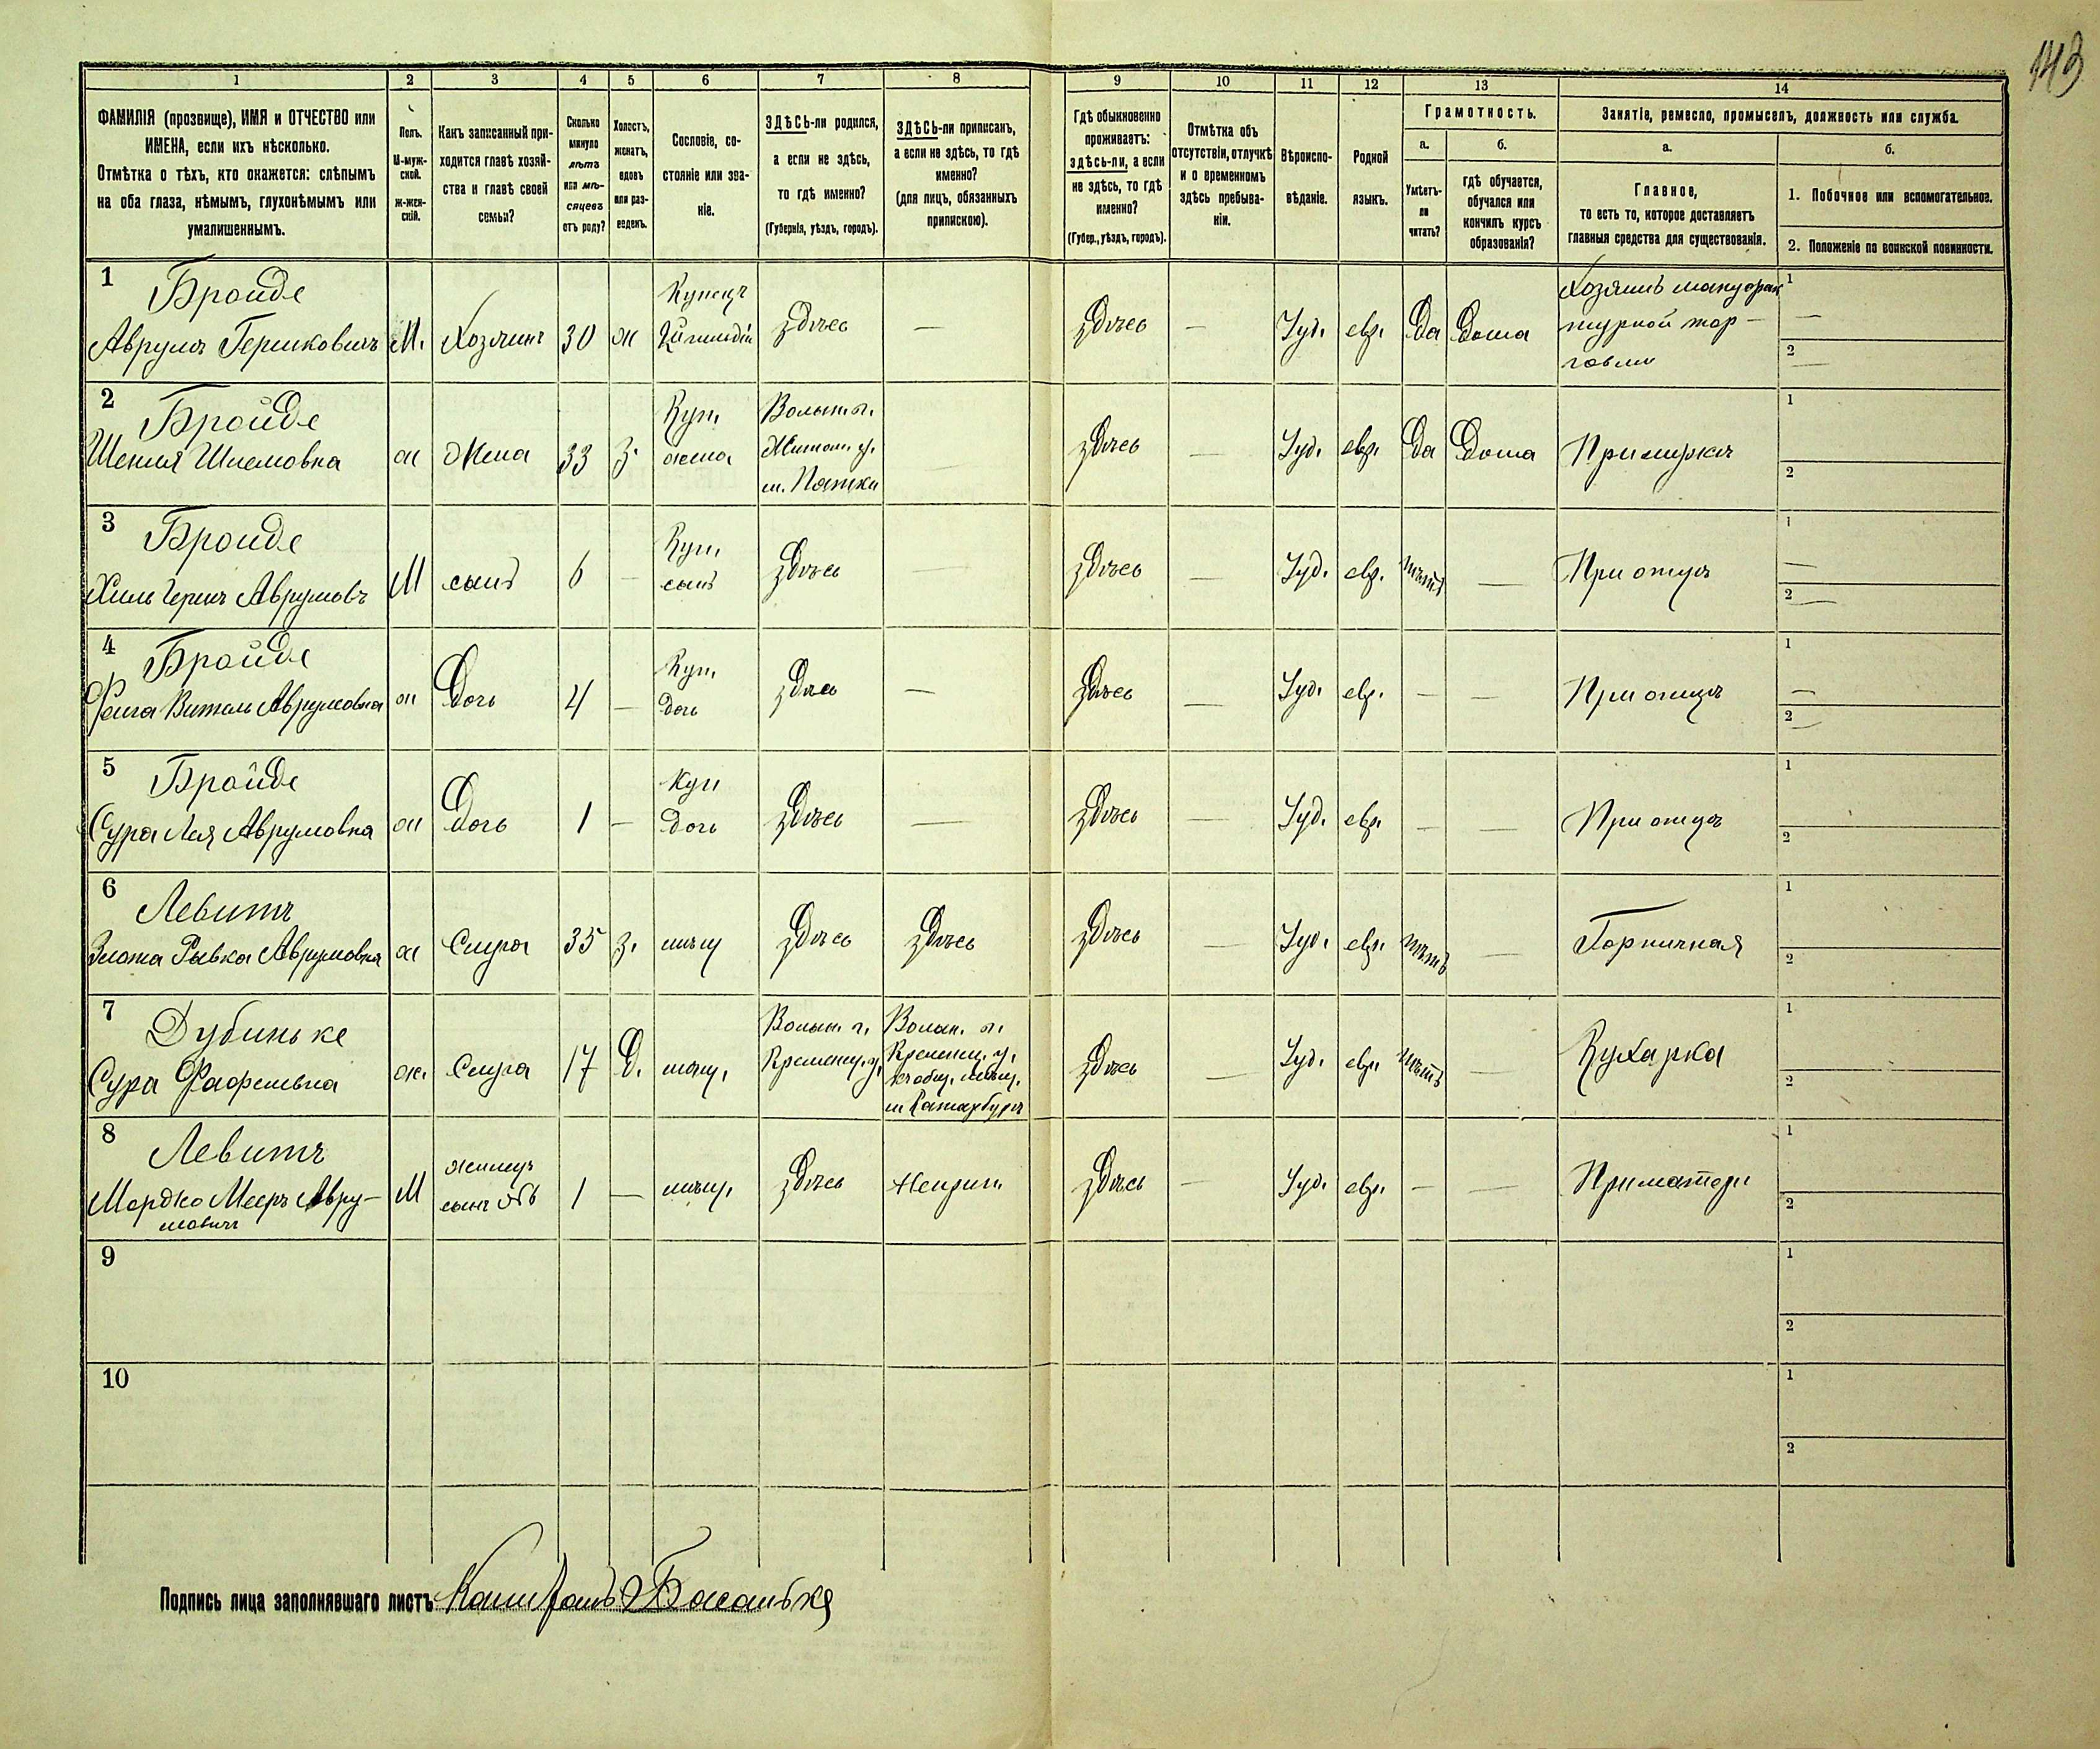 143
1 2 3 4 5 6 7 8 9 10 11 12 13 14
ФАМИЛІЯ (прозвище), ИМЯ и ОТЧЕСТВО или
ИМЕНА, если ихъ нѣсколько.
Отмѣтка о тѣхъ, кто окажется: слѣпымъ
на оба глаза, нѣмымъ, глухонѣмымъ или
умалишеннымъ.
Полъ.
М-муж-
ской.
Ж-жен-
скій.
Какъ записанный при-
ходится главѣ хозяй-
ства и главѣ своей
семьи?
Сколько
минуло
лѣтъ
или мѣ-
сяцевъ
отъ роду?
Холостъ,
женатъ,
вдовъ
или раз-
веденъ.
Сословіе, со-
стояніе или зва-
ніе.
ЗДѢСЬ-ли родился,
а если не здѣсь,
то гдѣ именно?
(Губернія, уѣздъ, городъ).
ЗДѢСЬ-ли приписанъ,
а если не здѣсь, то гдѣ
именно?
(для лицъ, обязанныхъ
припискою).
Гдѣ обыкновенно
проживаетъ:
здѣсь-ли, а если
не здѣсь, то гдѣ
именно?
(Губер., уѣздъ, городъ).
Отмѣтка объ
отсутствіи, отлучкѣ
и о временномъ
здѣсь пребыва-
ніи.
Вѣроиспо-
вѣданіе.
Родной
языкъ.
Грамотность.
а.
Умѣетъ-
ли
читать?
б.
гдѣ обучается,
обучался или
кончилъ курсъ
образованія?
Занятіе, ремесло, промыселъ, должность или служба.
а.
Главное,
то есть то, которое доставляетъ
главныя средства для существованія.
б.
1. Побочное или вспомогательное.
2. Положеніе по воинской повинности.
1 Бройде
Аврумъ Гершковичъ
М.
Хозяинъ
30
ж
Купецъ
здѣсь
—
здѣсь
—
Іуд.
евр.
Да
Дома
Хозяинъ мануфак
турной тор-
говли
1 —
2 —
2 Бройде
Шейня Шлемовна
ж
Жена
33
з.
Куп.
жена
Волын. г.
Житом. у.
м. Пятки
—
здѣсь
—
Іуд.
евр.
Да
Дома
При мужѣ
1
2
3 Бройде
Хиль Герш Аврумовъ
М
сынъ
6
—
Куп.
сынъ
здѣсь
—
здѣсь
—
Іуд.
евр.
нѣтъ
—
При отцѣ
1 —
2 —
4 Бройде
Фейга Витель Аврумовна
ж
Дочь
4
—
Куп.
дочь
здѣсь
—
здѣсь
—
Іуд.
евр.
—
—
При отцѣ
1 —
2 —
5 Бройде
Сура Лея Аврумовна
ж
Дочь
1
—
Куп
дочь
здѣсь
—
здѣсь
—
Іуд.
евр.
—
—
При отцѣ
1
2
6 Левитъ
Злота Рывка Аврумовна
ж
Слуга
35
з.
мѣщ
здѣсь
здѣсь
здѣсь
—
Іуд.
евр.
нѣтъ
—
Горничная
1
2
7 Дубиньке
Сура
ж.
Слуга
17
Д.
мѣщ.
Волын. г.
Кременец. у.
Волын. г.
Кременец. у.
къ общ. мѣщ.
м Катербургъ
здѣсь
—
Іуд.
евр.
нѣтъ
—
Кухарка
1
2
8 Левитъ
Мордко Мееръ Авру-
мовичъ
М
жилецъ
сынъ №6
1
—
мѣщ.
здѣсь
Неприп.
здѣсь
—
Іуд.
евр.
—
—
При матери
1
2
9
1
2
10
1
2
Подпись лица заполнявшаго листъ